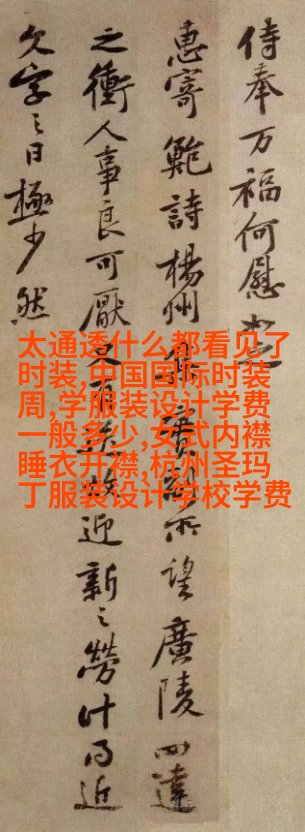 侍奉万福何慰
惠寄鲍詩楊州廣望廣陵四達
之衝人事良可厭又迎新之勞计近
久字之日極少然
太通透什么都看见了
时装,中国国际时装
周,学服装设计学费
一般多少,女式内襟
睡衣开襟,杭州圣玛
丁服装设计学校学费